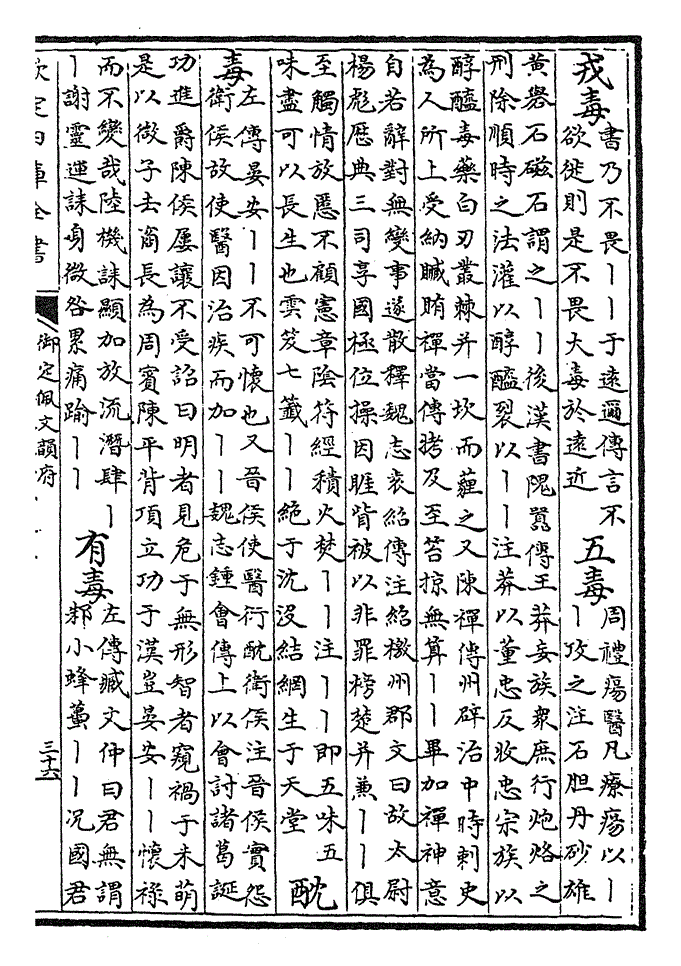 戎毒
書乃不畏丨丨于遠邇傳言不
欲徙則是不畏大毒於遠近
五毒
周禮瘍醫凡療瘍以丨
丨攻之注石胆丹砂雄
黄礜石磁石謂之丨丨後漢書隗囂傳王莽妄族衆庶行炮烙之
刑除順時之法灌以醇醯裂以丨丨注莽以董忠反收忠宗族以
醇醯毒藥白刃叢棘并一坎而薶之又陳禪傳州辟治中時刺史
為人所上受納贓賄禪當傳拷及至笞掠無算丨丨畢加禪神意
自若辭對無變事遂散釋魏志袁紹傳注紹檄州郡文曰故太尉
楊彪歴典三司享國極位操因睚眥被以非罪榜楚并兼丨丨俱
至觸情放慝不顧憲章陰符經積火焚丨丨注丨丨即五味五
味盡可以長生也雲笈七籤丨丨絶于沈没結網生于天堂
酖
毒
左傳晏安丨丨不可懷也又晉侯使醫衍酖衛侯注晉侯實怨
衛侯故使醫因治疾而加丨丨魏志鍾會傳上以會討諸葛誕
功進爵陳侯屢讓不受詔曰明者見危于無形智者窺禍于未萌
是以微子去商長為周賓陳平背項立功于漢豈晏安丨丨懷禄
而不變哉陸機誄顯加放流潛肆丨
丨謝靈運誄身微咎累痛踰丨丨
有毒
左傳臧文仲曰君無謂
邾小蜂蠆丨丨况國君
欽定四庫全書
御定佩文韻府
三十六